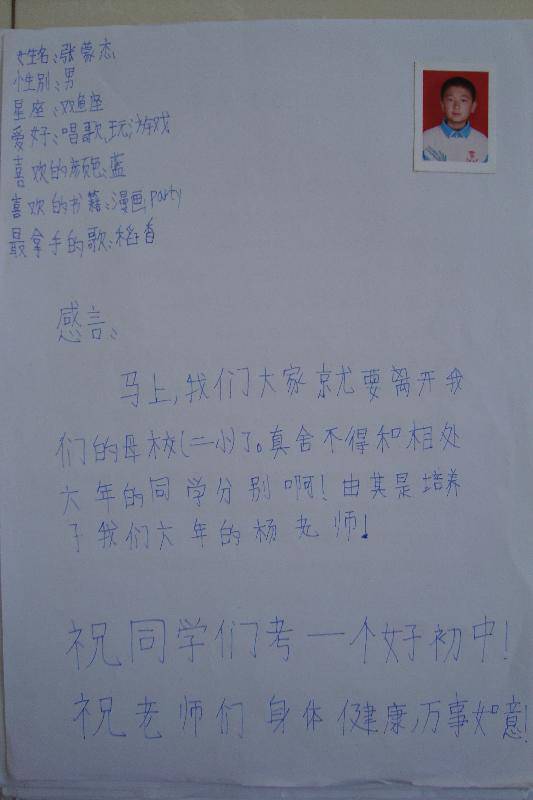 姓名:张蒙杰
性别:男
星座:双鱼座
爱好:唱歌,玩游戏
喜欢的颜色:蓝
喜欢的书籍:漫画party
最拿手的歌:稻香
感言:
马上,我们大家就要离开我
们的母校(二小)了。真舍不得和相处
六年的同学分别啊!由其是培养
了我们六年的杨老师!
祝同学们考一个好初中!
祝老师们身体健康,万事如意!